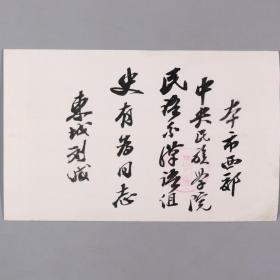 本市西郊
中央民族学院
民语系漢语组
史有为同志
東城刘缄